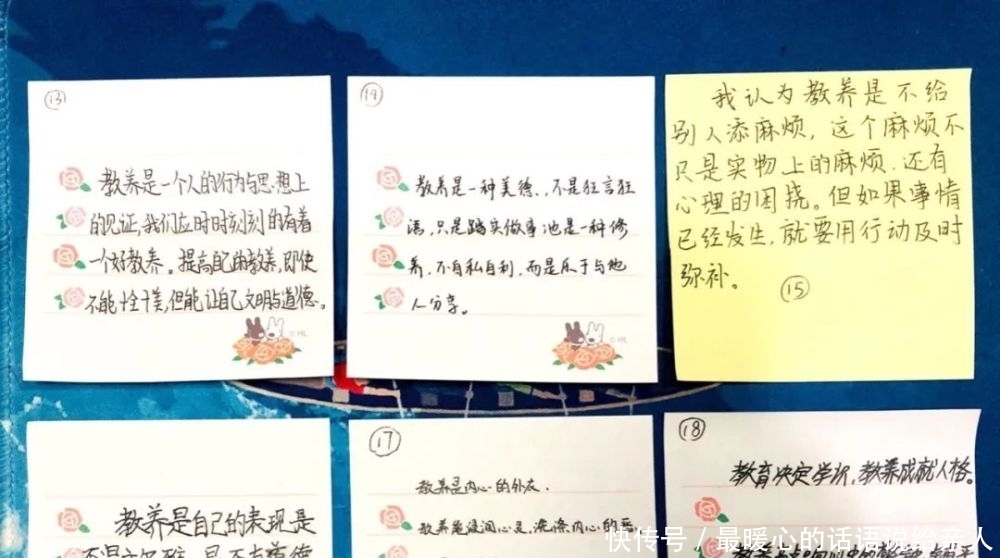 ⑬
教养是一个人的行为与思想上
的见证,我们应时时刻刻的有着
一个好教养。提高自己的教养,即使
不能十全十美,但能让自己文明与道德。
© HL
⑭
教养是一种美德,不是狂言狂
语,只是踏实做事也是一种修
养,不自私自利,而是乐于与他
人分享。
© HL
我认为教养是不给
别人添麻烦,这个麻烦不
只是实物上的麻烦,还有
心理的困挠。但如果事情
已经发生,就要用行动及时
弥补。
⑮
教养是自己的表现是
⑰
教养是内心的外在.
教养能浸润心灵,洗涤内心的
⑱
教育决定学识,教养成就人格。
快传号 / 最暖心的话语说给亲人